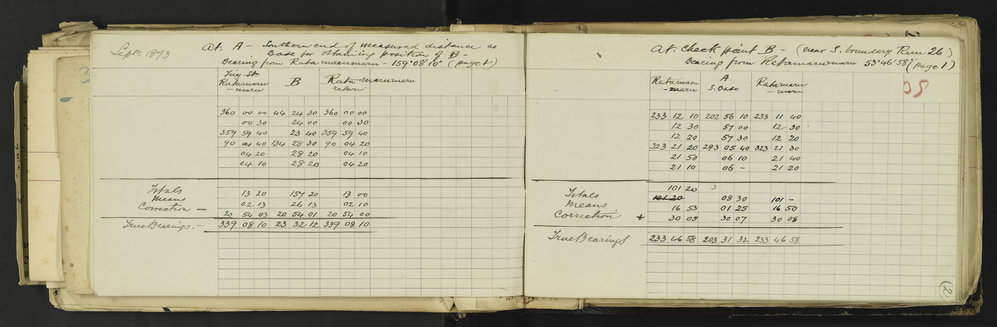 Sept 1893
At. A - Southern end of measured distance as
base for obtaining position of B -
Bearing from Ratamarumaru - 159°08'10" (page 1)
Trig St. B Ratamarumaru
Ratamaru return
-maru
360 00 00 44 24 30 360 00 00
00 30 24 00 00 30
359 59 40 23 40 359 59 40
90 04 40 134 28 30 90 04 20
04 20 28 20 04 10
04 10 28 20 04 20
Totals 13 20 157 20 13 00
Means 02 13 26 13 02 10
Correction - 20 54 03 20 54 01 20 54 00
True Bearings:- 339 08 10 23 32 12 339 08 10
At. Check point B - (near S. boundary Run 26)
Bearing from 53°46'58" (page 1)
Ratamaru A Ratamaru
-maru S. Base -maru
233 12 10 202 56 10 233 11 40
12 30 57 00 12 30
12 20 57 30 12 20
323 21 20 293 05 40 323 21 30
21 50 06 10 21 40
21 10 06 - 21 20
101 20
Totals 08 30 101 -
Means 16 53 01 25 16 50
Correction + 30 05 30 07 30 08
True Bearings 233 46 58 203 31 32 233 46 58